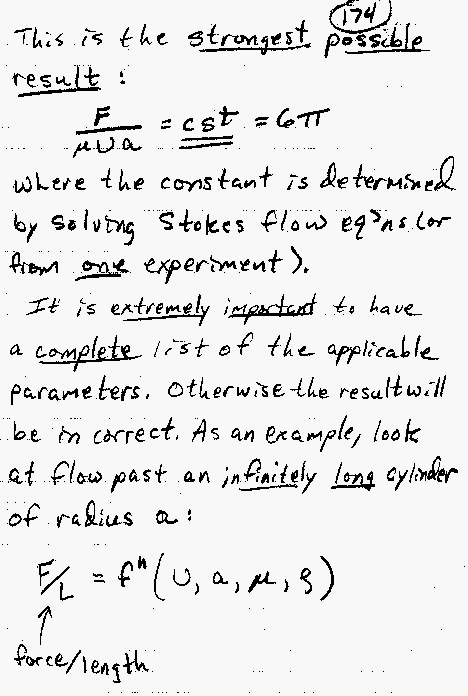 174
This is the strongest possible
result :
F/μUa = cst = 6π
where the constant is determined
by solving Stokes flow eq'ns (or
from one experiment).
It is extremely important to have
a complete list of the applicable
parameters. Otherwise the result will
be in correct. As an example, look
at flow past an infinitely long cylinder
of radius a :
F/L = fⁿ (U, a, μ, ρ)
force/length